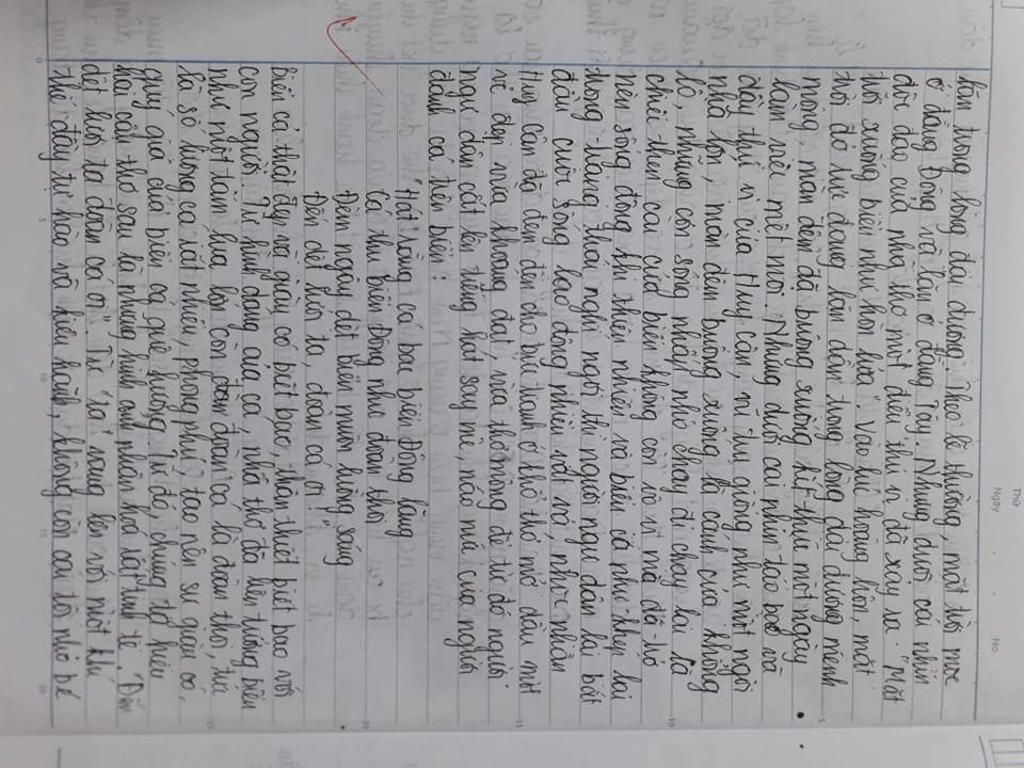 lặn trong lòng đại dương. Theo lẽ thường, mặt trời mọc
ở đằng Đông và lặn ở đằng Tây. Nhưng dưới cái nhìn
độc đáo của nhà thơ một điều thú vị đã xảy ra. "Mặt
trời xuống biển như hòn lửa". Vào lúc hoàng hôn, mặt
trời đỏ lửa đang lặn dần trong lòng đại dương mênh
mông, màn đêm đã buông xuống kết thúc một ngày
làm việc mệt mỏi. Nhưng dưới cái nhìn táo bạo và
đầy thú vị của Huy Cận, vũ trụ giống như một ngôi
nhà lớn, màn đêm buông xuống là cánh cửa khổng
lồ, những con sóng nhấp nhô chạy đi chạy lại là
chiếc then cài cửa biển không còn xa vị mà đã trở
nên sống động khi thiên nhiên và biển cả như khép lại
trong trạng thái nghỉ ngơi thì người ngư dân lại bắt
đầu cuộc sống lao động nhiên rất nó, nhà nhân
Huy Cận đã đem đến cho bức tranh ở thơ thơ mở đầu một
vẻ đẹp vừa khoáng đạt, vừa thơ mộng để từ đó người
ngư dân cất lên tiếng hát say mê, náo mê của người
đánh cá trên biển:
"Hát rằng: cá bạc biển Đông lặng
Cá thu biển Đông như đoàn thoi
Đêm ngày dệt biển muôn luồng sáng
Đến dệt lưới ta, đoàn cá ơi!"
Biển cả thật đẹp và giàu có biết bao, thân thiết biết bao với
con người. Từ hình dáng của cá, nhà thơ đã liên tưởng biển
như một tấm lụa lớn còn đoàn đoàn cá là đoàn thoi, tức
là số lượng cá rất nhiều, phong phú tạo nên sự giàu có,
quý giá của biển cả quê hương. Từ đó, chúng ta hiểu
hai câu thơ sau là những hình ảnh nhân hoá rất tinh tế. "Đến
dệt lưới ta đoàn cá ơi" Từ "ta" vang lên với một khí
thế đầy tự hào và kiêu hãnh, không còn cái tôi nhỏ bé
Thứ
Ngày
No.